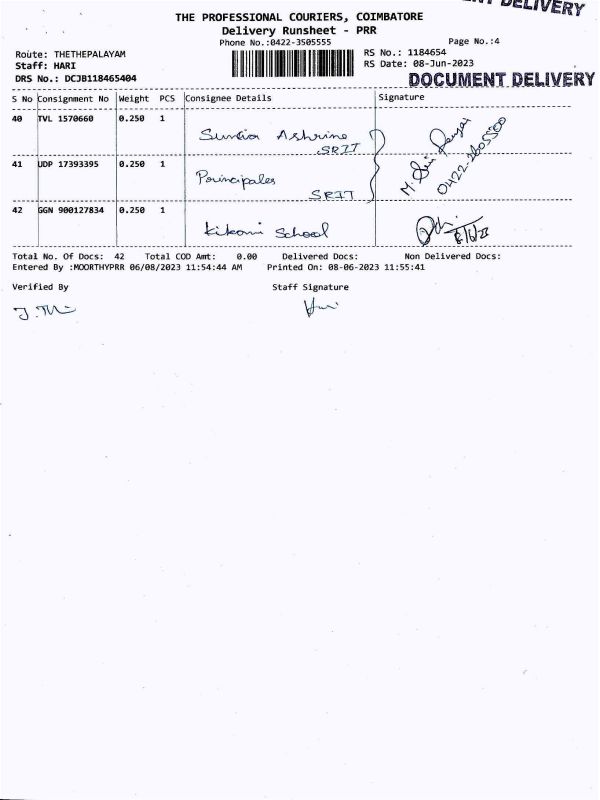 NT DELIVERY
THE PROFESSIONAL COURIERS, COIMBATORE
Delivery Runsheet - PRR
Phone No.:0422-3505555
Page No.:4
Route: THETHEPALAYAM
RS No.: 1184654
Staff: HARI
RS Date: 08-Jun-2023
DRS No.: DCJB118465404
DOCUMENT DELIVERY
S No Consignment No Weight PCS Consignee Details Signature
40 TVL 1570660 0.250 1
SRIT
41 UDP 17393395 0.250 1 Principales
SRIT
0422-2605500
42 GGN 900127834 0.250 1 Kikani School
8/6/23
Total No. Of Docs: 42 Total COD Amt: 0.00 Delivered Docs: Non Delivered Docs:
Entered By :MOORTHYPRR 06/08/2023 11:54:44 AM Printed On: 08-06-2023 11:55:41
Verified By Staff Signature